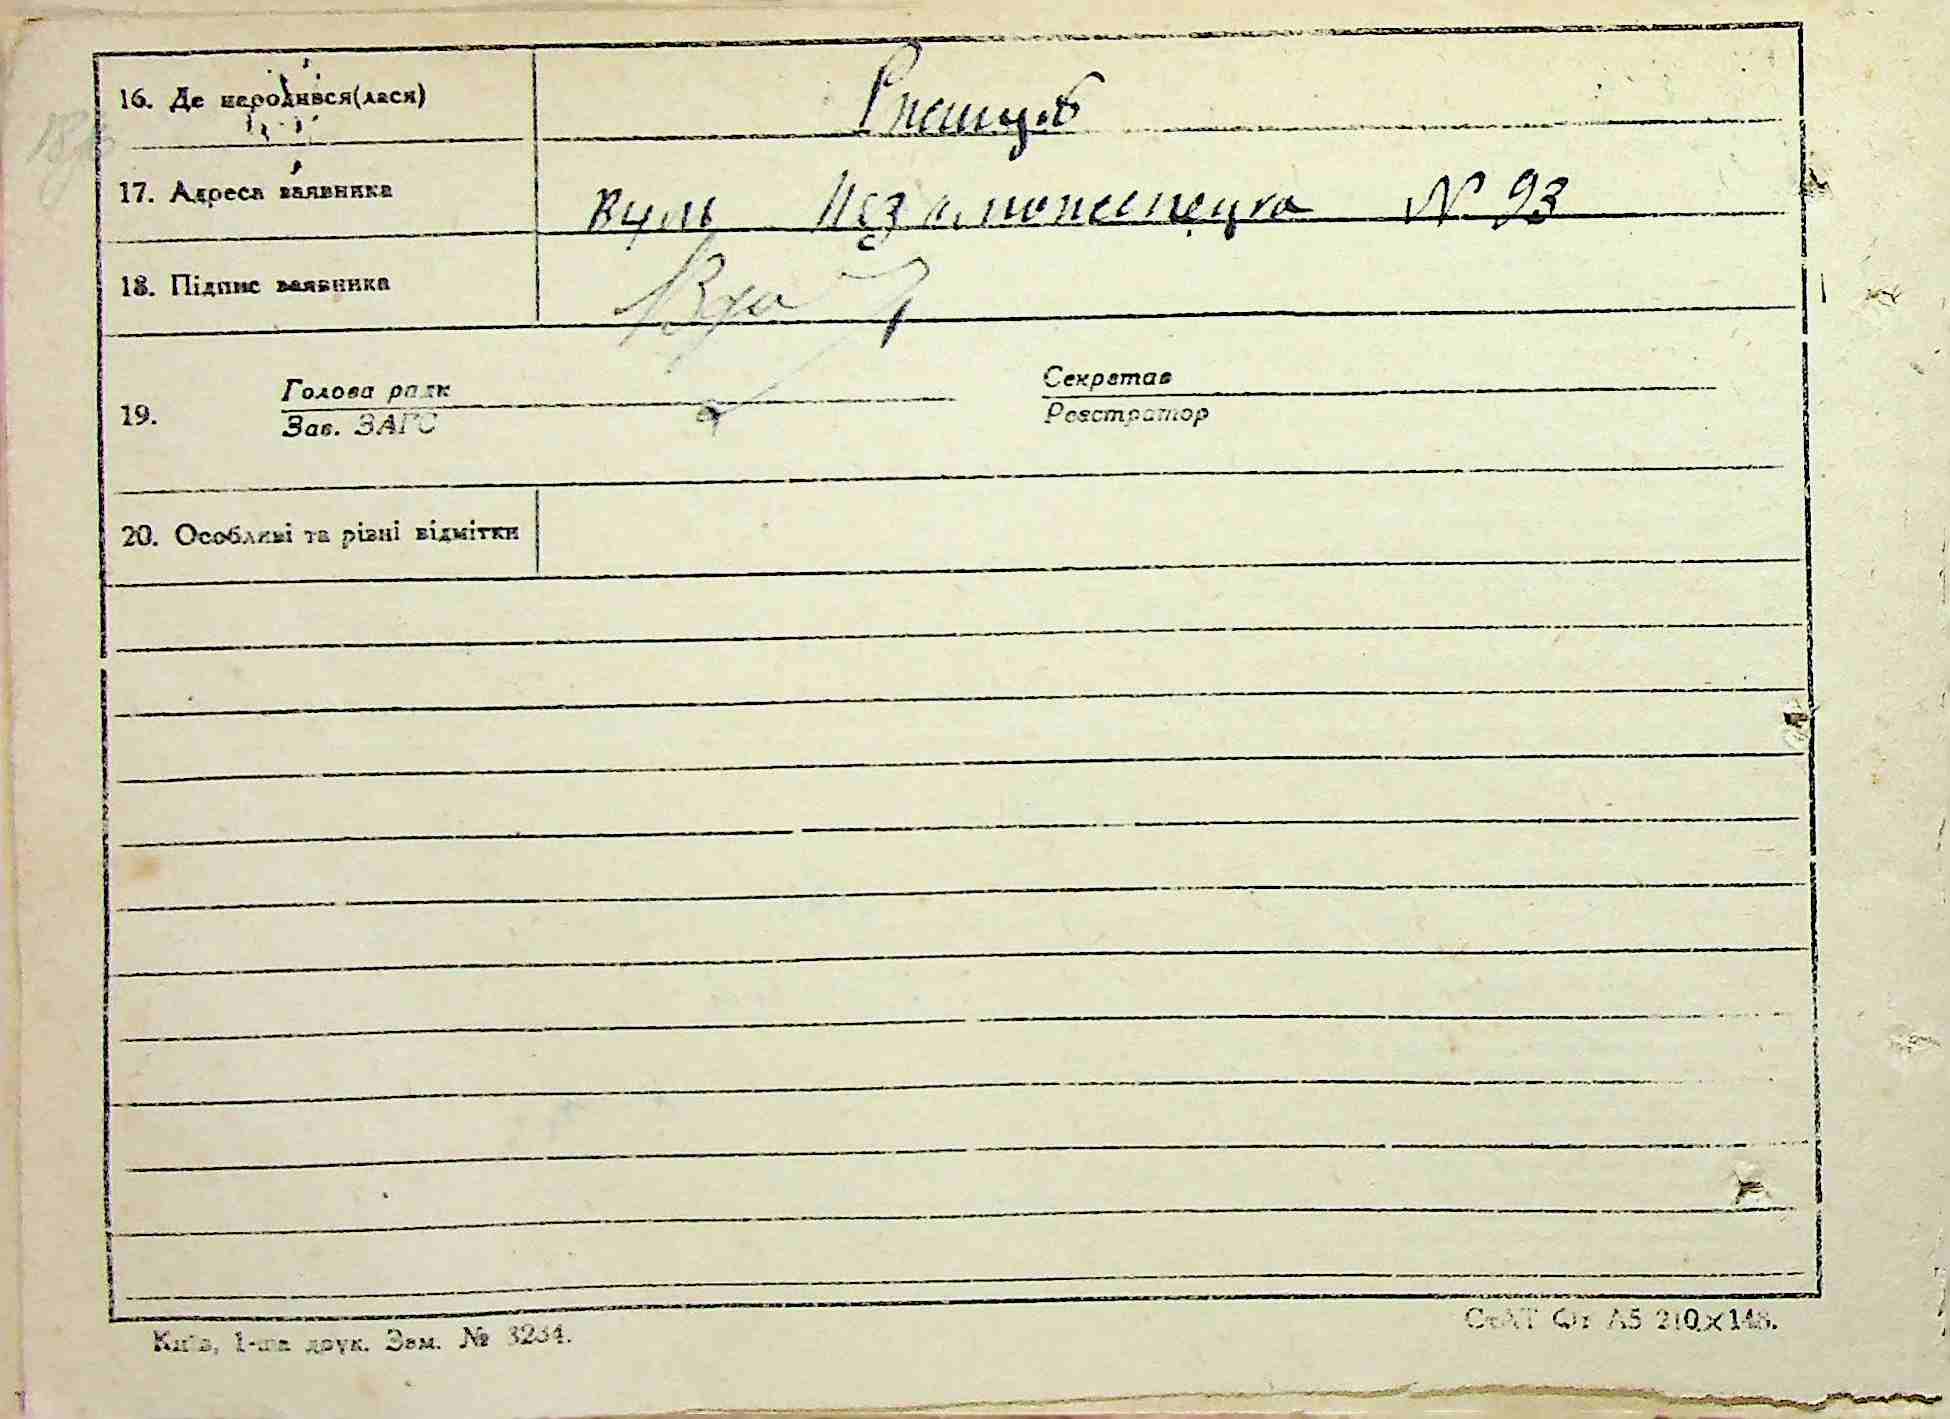 16. Де народився(лася) Ржищів
17. Адреса заявника вуль Незаможенецка № 93
18. Підпис заявника
19. Голова ради Секретар
Зав. ЗАГС Реєстратор
20. Особливі та різні відмітки
Київ, 1-ша друк. Зам. № 3234.
СтАТ Фт А5 210×148.